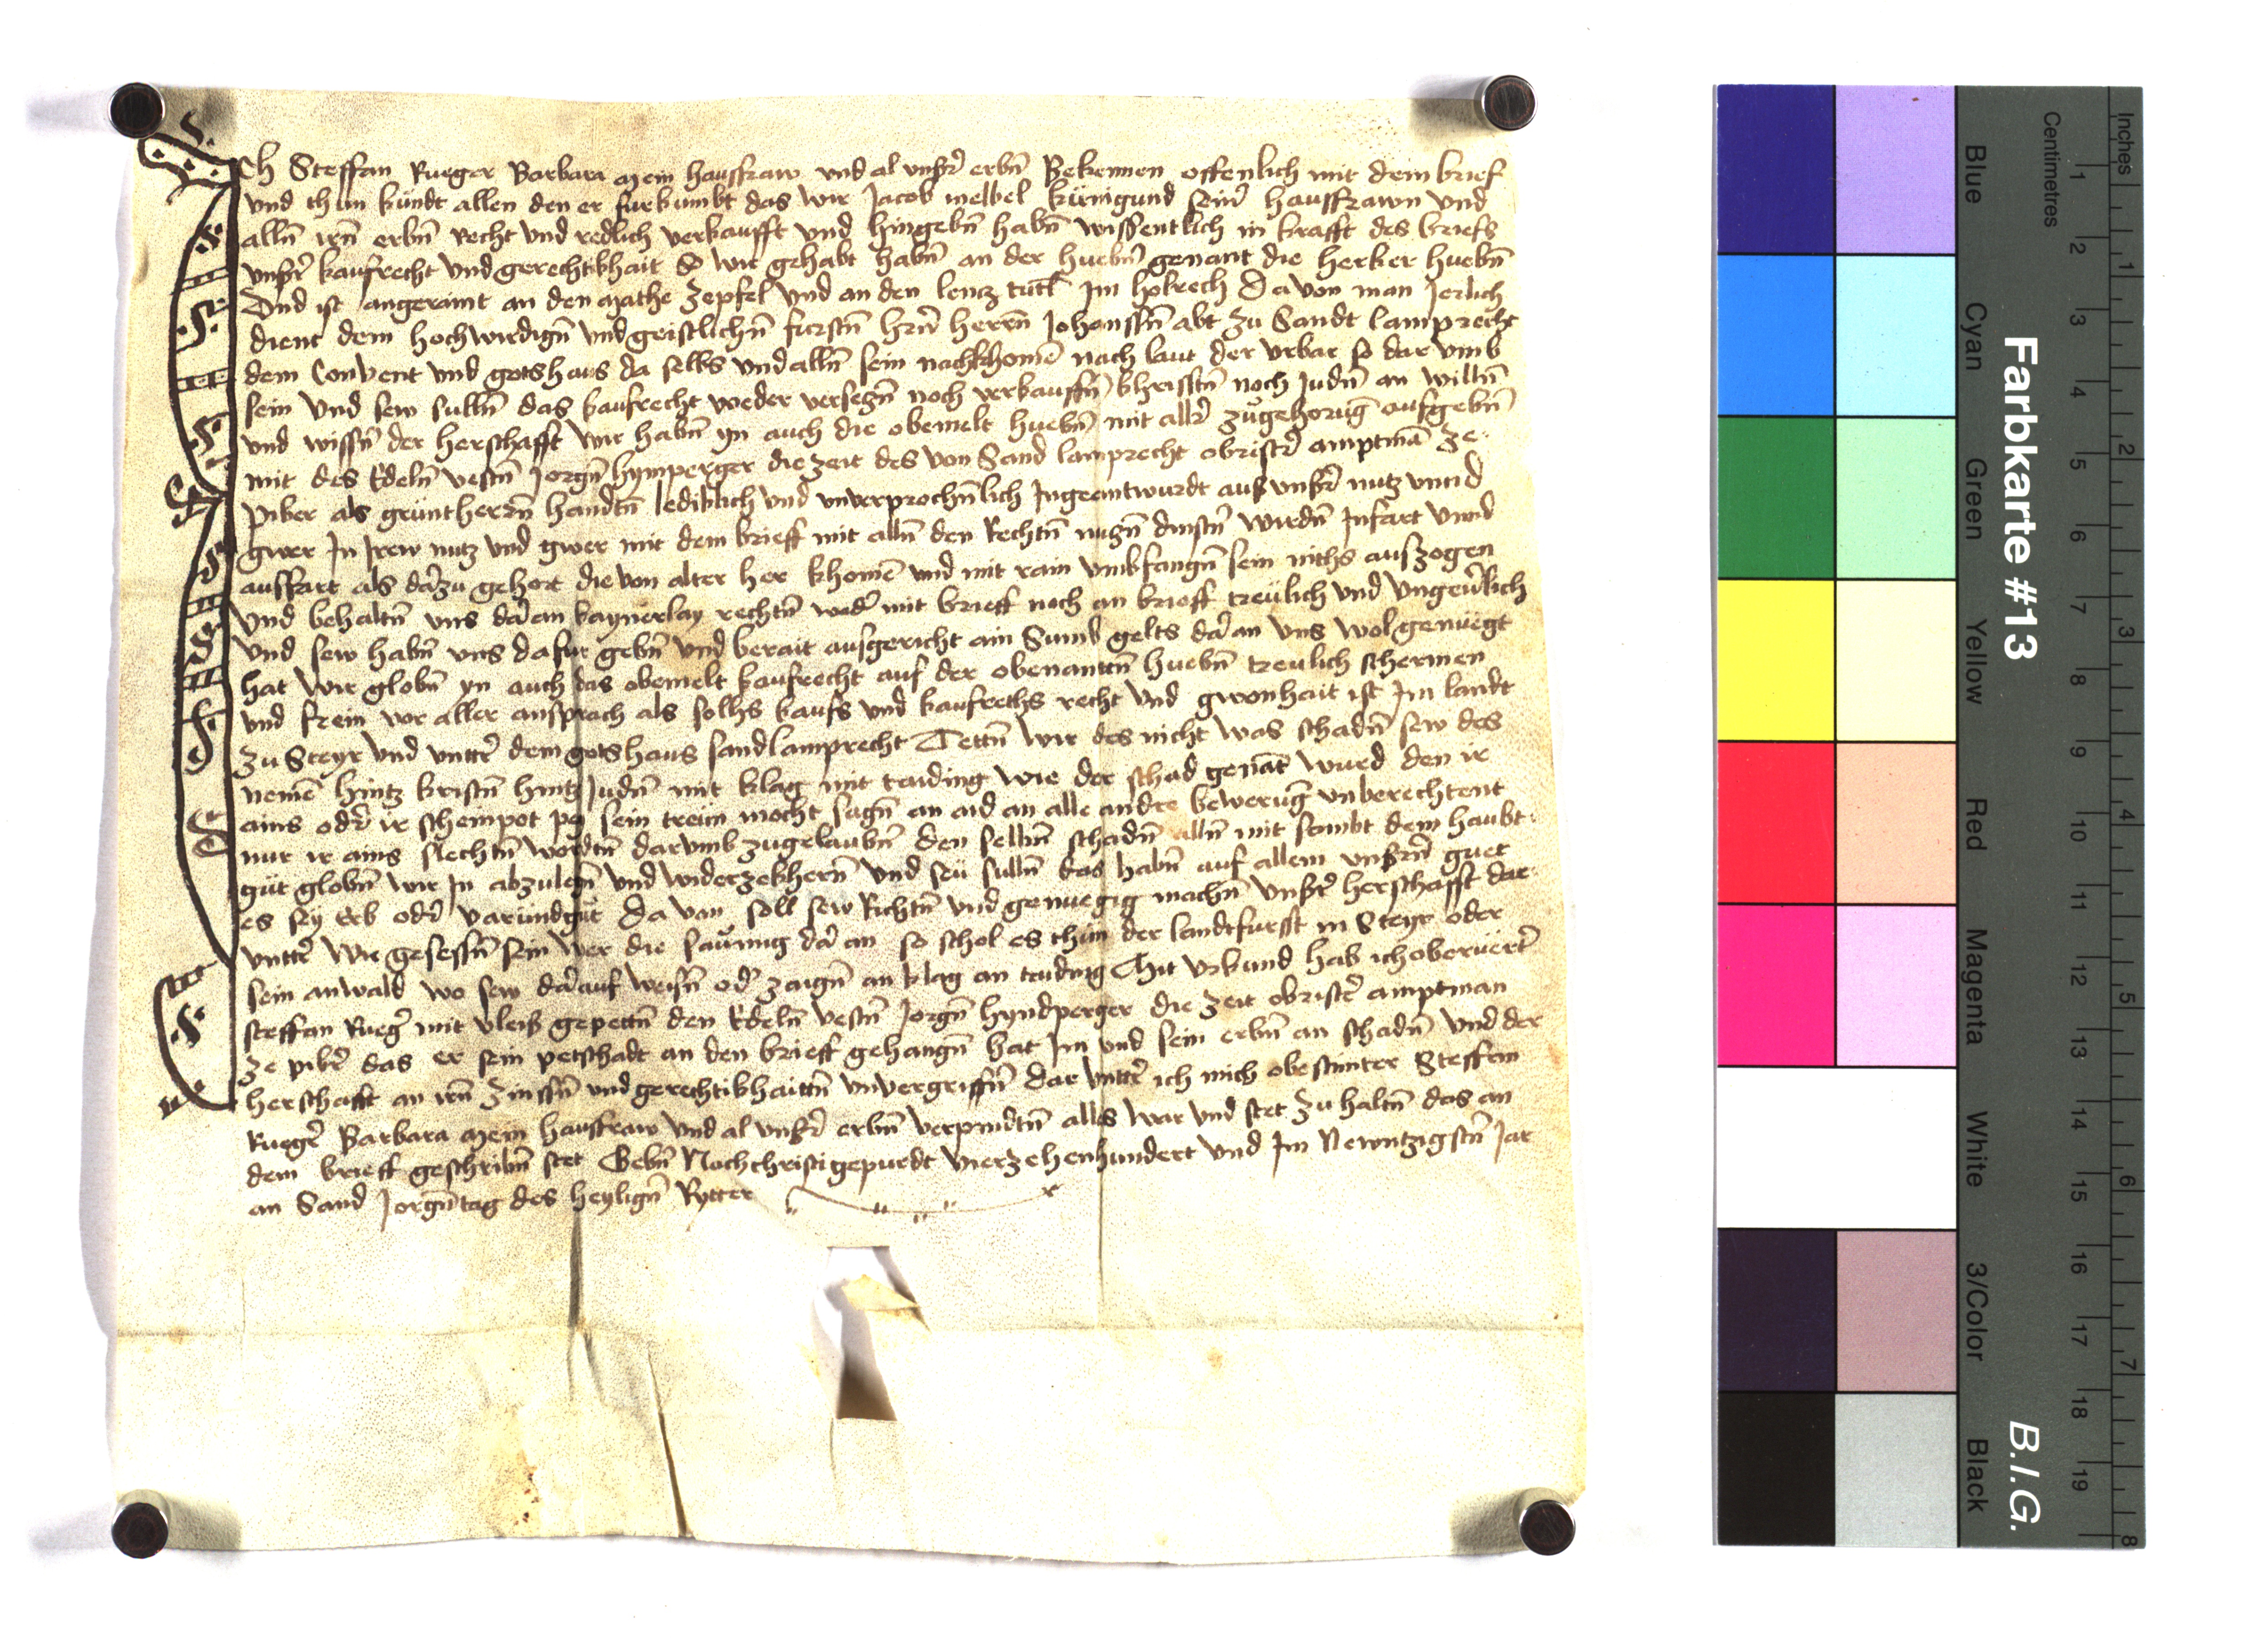 Ich Steffan Rueger Barbara mein hausfraw und al unsr̄ erbn̄ Bekennen offenlich mit dem brief
und thun kündt allen den er furkumbt das wir Jacob melbel künigund seinr̄ hausfrawn und
alln̄ irn̄ erbn̄ Recht und redlich verkaufft und hingebn̄ habn̄ wissentlich in krafft des briefs
unsr̄ kaufrecht und gerechtikhait So wir gehabt habn̄ an der huebn̄ genant die herker huebn̄
Und ist angeraint an den mathe Zepfel und an den lencz Im holrech Da von man Jerlich
dient dem hochwirdign̄ und geistlichn̄ furstn̄ hrn̄ herrn̄ Johannsn̄ abt zu Sandt lamprecht
dem Convent und gotshaus da selbs und alln̄ sein nachkhomē nach laut der urbar so dar umb
sein Und sew sulln̄ das kaufrecht weder verseczn̄ noch verkauffn̄ khristn̄ noch Judn̄ an willn̄
und wissn̄ der herschafft wir habn̄ yn auch die obemelt huebn̄ mit allr̄ zugehorūg aufgebn̄
mit des Edeln̄ vestn̄ Jorgn̄ hymperger die zeit des von Sand lamprecht obristr̄ amptmā ze
piber als gruntherrn̄ handtn̄ lediklich und unverprochn̄lich Ingeantwurdt aus unsr̄ nutz unnd
gwer In Irew nutz und gwer mit dem brieff mit alln̄ den Rechtn̄ nuczn̄ dinstn̄ wirdn̄ Infart unnd
ausfart als dāzu gehort die von alter her khomē und mit rain umbfangn̄ sein nichts auszogen
Und behaltn̄ uns dā an kaynerlay rechtn̄ wedr̄ mit brieff noch an brieff treulich und ungeūlich
Und sew habn̄ uns dafur gebn̄ und berait ausgericht ain Sumb gelts dā an uns wol genüegt
hat Wir globn̄ yn auch das obemelt kaufrecht auf der obenanttn̄ huebn̄ treulich schermen
und frein vor aller ansprach als solhs kaufs und kaufrechts recht und gwonhait ist Im landt
zu Steyr und unttr̄ dem gotshaus sand lamprecht Tettn̄ wir des nicht was schadn̄ sew des
nemē hintz kristn̄ hintz Judn̄ mit klag mit taiding wie der schad genāt wurd den ir
ains odr̄ ir scheinpot pey sein trewn mocht sagn̄ an aid an alle andre bewerūg unberechtent
nur ir ains slechtn̄ wortn̄ darumb zugelaubn̄ den selbn̄ schadn̄ alln̄ mit sambt dem haubt
gut globn̄ wir In abzulegn̄ und widerzekhern̄ und seu sulln̄ das habn̄ auf allem unsrn̄ guet
es sey Erb odr̄ varundgut Da van soll sew Richtn̄ und genuegig machn̄ unsr̄ herschafft dar
unttr̄ wir gesessn̄ sein wer die saumig dā an so schol es thun der landtfurst in Steyr oder
sein anwald wo sew dā auf weisn̄ odr̄ zaign̄ an klag an taiding Mit urkund hab ich oberuertr̄
steffan Ruegr̄ mit vleis gepettn̄ den Edeln̄ vestn̄ Jorgn̄ hyndperger die zeit obristr̄ amptman
ze pibr̄ das er sein petschadt an den brieff gehangn̄ hat Im und sein erbn̄ an schadn̄ und der
herschafft an irn̄ Zinssn̄ und gerechtikhaittn̄ unvergriffn̄ dar unttr̄ ich mich obestimter Steffan
Ruegr̄ Barbara mein hausfraw und al unsr̄ erbn̄ verpindtn̄ alls war und stet zu haltn̄ das an
dem brieff geschribn̄ stet Gebn̄ Noch christi gepurdt vierzehenhundert und Im Newntzigstn̄ Jar
an Sand Jorgn̄tag des heylign̄ Rytter
Farbkarte #13
B.I.G.
Blue
Cyan
Green
Yellow
Red
Magenta
White
3/Color
Black
Centimetres
1 2 3 4 5 6 7 8 9 10 11 12 13 14 15 16 17 18 19
Inches
1 2 3 4 5 6 7 8